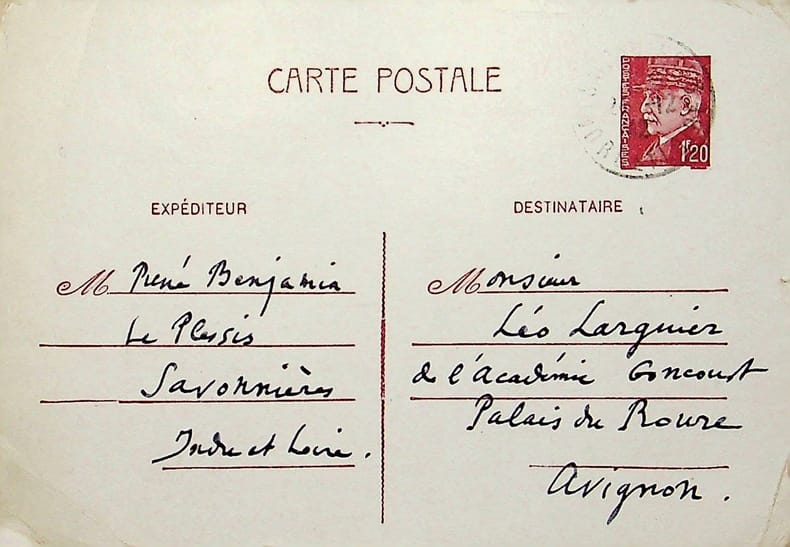 CARTE POSTALE
POSTES FRANÇAISES
1F20
EXPÉDITEUR
M René Benjamin
Le Plessis
Savonnières
Indre et Loire.
DESTINATAIRE
Monsieur
Léo Larguier
de l'Académie Goncourt
Palais du Roure
Avignon.